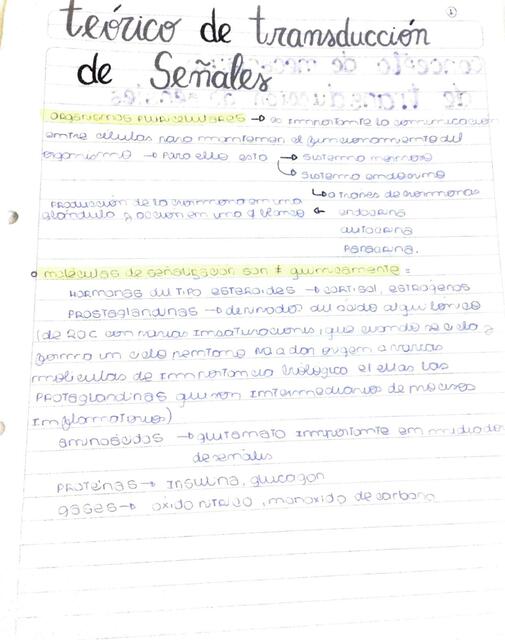 1
teórico de transducción
de Señales
ORGANISMOS PLURICELULARES → es importante la comunicación
entre células para mantener el funcionamiento del
organismo → para ello esta → sistema nervioso
→ sistema endocrino
↳ a traves de hormonas
PRODUCCIÓN de la hormona en una
glándula y acción en una glándula ← endocrina
autocrina
paracrina.
moléculas de señalizacion son ≠ quimicamente :
HORMONAS del TIPO ESTEROIDES → CORTISOL, ESTRÓGENOS
PROSTAGLANDINAS → derivados del ácido
(de 20C con varias insaturaciones, que cuando se cicla y
forma un ciclo va a dar origen a varias
moléculas de importancia biológica el ellas las
PROTAGLANDINAS que son intermediarios de procesos
inflamatorios)
aminoacidos → glutamato importante en
de señales
PROTEÍNAS → insulina, glucagon
gases → oxido nitrico, monoxido de carbono